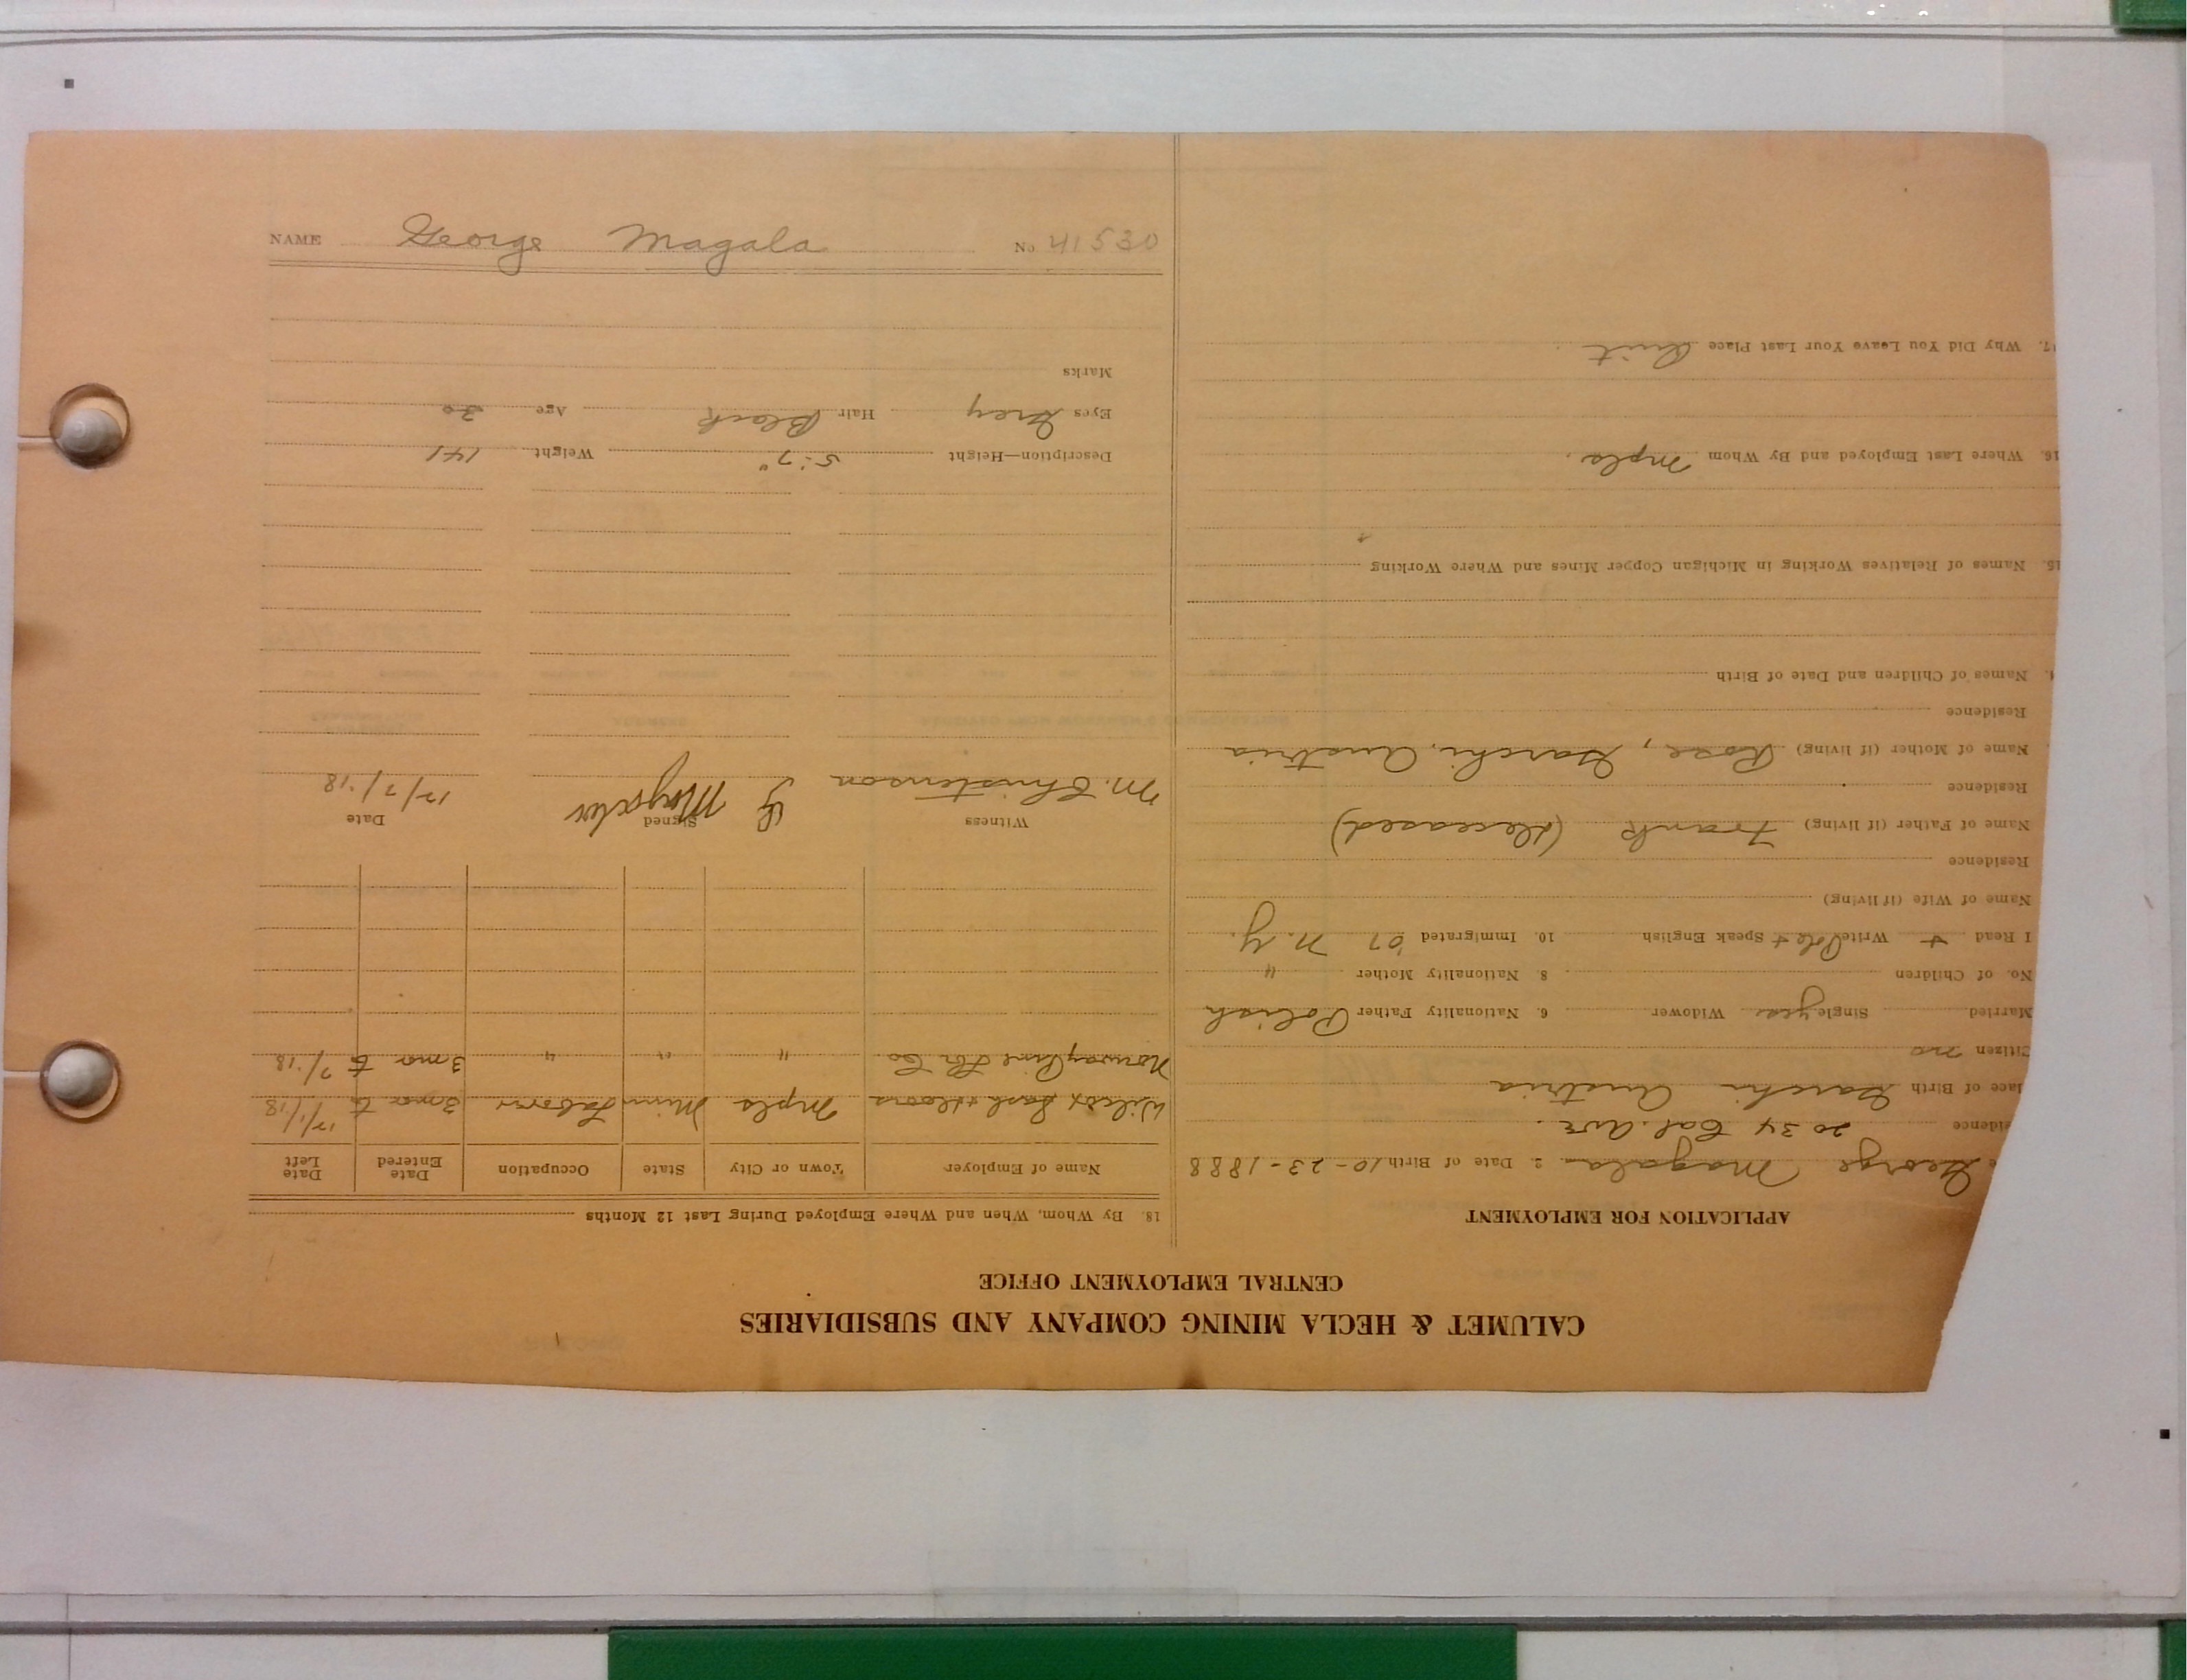 CALUMET & HECLA MINING COMPANY AND SUBSIDIARIES
CENTRAL EMPLOYMENT OFFICE
APPLICATION FOR EMPLOYMENT
e George Magala 2. Date of Birth 10-23-1888
esidence 2034 Cal. Ave.
lace of Birth Austria
Citizen no
Married Single yes Widower 6. Nationality Father Polish
No. of Children 8. Nationality Mother "
I Read + Write Pole + Speak English 10. Immigrated '07 N.Y.
Name of Wife (if living)
Residence
Name of Father (if living) Frank (deceased)
Residence
Name of Mother (if living) Rose, Austria
Residence
4. Names of Children and Date of Birth
15. Names of Relatives Working in Michigan Copper Mines and Where Working
16. Where Last Employed and By Whom Mpls.
17. Why Did You Leave Your Last Place Quit
18. By Whom, When and Where Employed During Last 12 Months
Name of Employer Town or City State Occupation Date Entered Date Left
Wilcox Sash + Doors Mpls Minn Laborer 3 mo to 12/1/18
Norway Pine Lbr Co " " " 3 mo to 7/18
Witness Signed Date
M. Christenson G Magala 12/7/18
Description—Height 5:7" Weight 141
Eyes Grey Hair Black Age 30
Marks
NAME George Magala No 41530